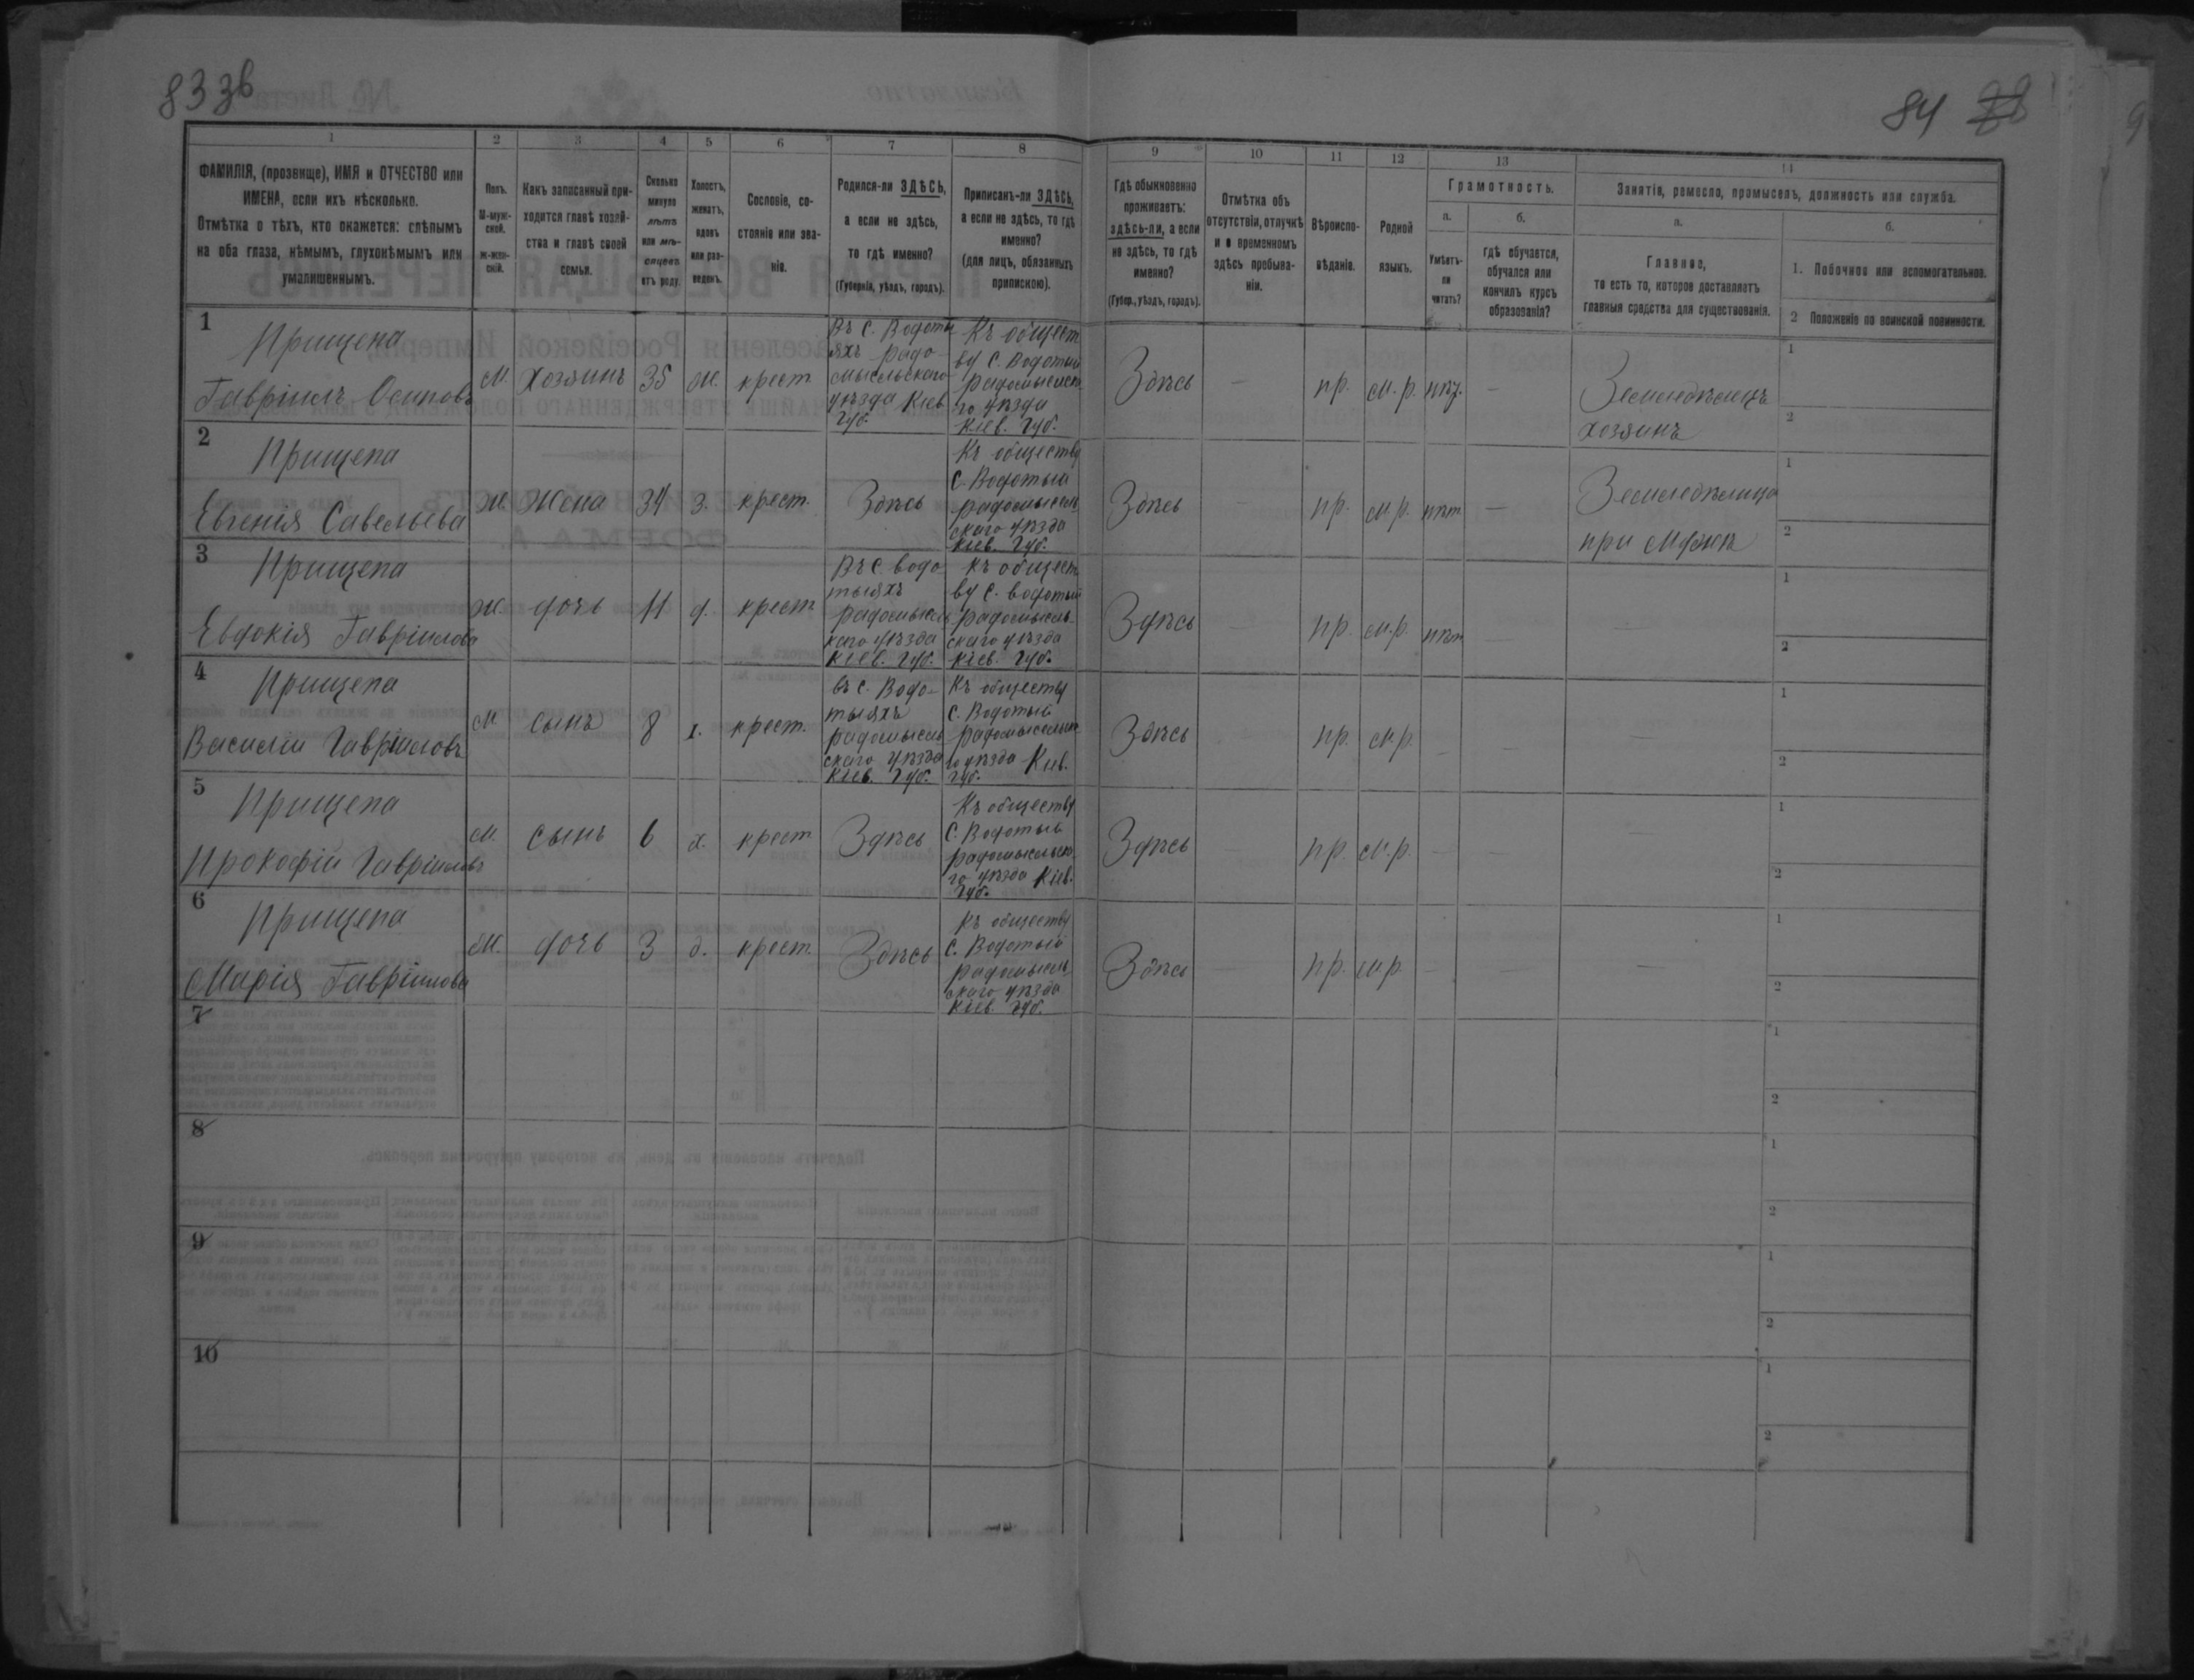 83 зв
84
1 2 3 4 5 6 7 8 9 10 11 12 13 14
ФАМИЛІЯ, (прозвище), ИМЯ и ОТЧЕСТВО или
ИМЕНА, если ихъ нѣсколько.
Отмѣтка о тѣхъ, кто окажется: слѣпымъ
на оба глаза, нѣмымъ, глухонѣмымъ или
умалишеннымъ.
Полъ.
М-муж-
ской.
Ж-жен-
скій.
Какъ записанный при-
ходится главѣ хозяй-
ства и главѣ своей
семьи.
Сколько
минуло
лѣтъ
или мѣ-
сяцевъ
отъ роду.
Холостъ,
женатъ,
вдовъ
или раз-
веденъ.
Сословіе, со-
стояніе или зва-
ніе.
Родился-ли ЗДѢСЬ,
а если не здѣсь,
то гдѣ именно?
(Губернія, уѣздъ, городъ).
Приписанъ-ли ЗДѢСЬ,
а если не здѣсь, то гдѣ
именно?
(для лицъ, обязанныхъ
припискою).
Гдѣ обыкновенно
проживаетъ:
здѣсь-ли, а если
не здѣсь, то гдѣ
именно?
(Губер., уѣздъ, городъ).
Отмѣтка объ
отсутствіи, отлучкѣ
и о временномъ
здѣсь пребыва-
ніи.
Вѣроиспо-
вѣданіе.
Родной
языкъ.
Грамотность.
а.
Умѣетъ-
ли
читать?
б.
гдѣ обучается,
обучался или
кончилъ курсъ
образованія?
Занятія, ремесло, промыселъ, должность или служба.
а.
Главное,
то есть то, которое доставляетъ
главныя средства для существованія.
б.
1. Побочное или вспомогательное.
2 Положеніе по воинской повинности.
1
Прищепа
Гавріилъ Осиповъ
М.
хозяинъ
35
ж.
крест
Въ с. Водоты
яхъ радо-
мысльскаго
уѣзда Кіев
Губ.
Къ общест
ву С. Водотый
радомысльска
го уѣзда
Кіев. Губ.
Здѣсь
—
пр.
м. р.
—
Земледѣлецъ
хозяинъ
1
2
2
Прищепа
Евгенія Савельева
Ж.
Жена
34
з.
крест.
Здѣсь
Къ обществу
С. Водотый
радомысль
скаго уѣзда
Кіев. Губ.
Здѣсь
—
пр.
м. р.
нѣт
—
Земледѣлица
при Мужѣ
1
2
3
Прищепа
Евдокія Гавріилова
Ж.
дочь
11
д.
крест
Въ с. Водо
тыяхъ
радомысль
скаго уѣзда
Кіев. Губ.
Къ общест
ву С. Водотый
радомысль-
скаго уѣзда
Кіев. Губ.
Здѣсь
—
пр.
м. р.
нѣт
—
—
1
2
4
Прищепа
Василій Гавріиловъ
М
сынъ
8
х.
крест.
въ с. Водо-
тыяхъ
радомысль
скаго уѣзда
Кіев. Губ.
Къ обществу
С. Водотый
радомысльска
го уѣзда Кіев.
Губ.
Здѣсь
пр.
м. р.
—
—
—
1
2
5
Прищепа
Прокофій Гавріиловъ
М.
сынъ
6
х.
крест
Здѣсь
Къ обществу
С. Водотый
радомысльска
го уѣзда Кіев.
Губ.
Здѣсь
—
пр.
м. р.
—
—
—
1
2
6
Прищепа
Марія Гавріилова
Ж.
дочь
3
д.
крест.
Здѣсь
Къ обществу
С. Водотый
радомысль
скаго уѣзда
Кіев. Губ.
Здѣсь
—
пр.
м. р.
—
—
—
1
2
7
1
2
8
1
2
9
1
2
10
1
2